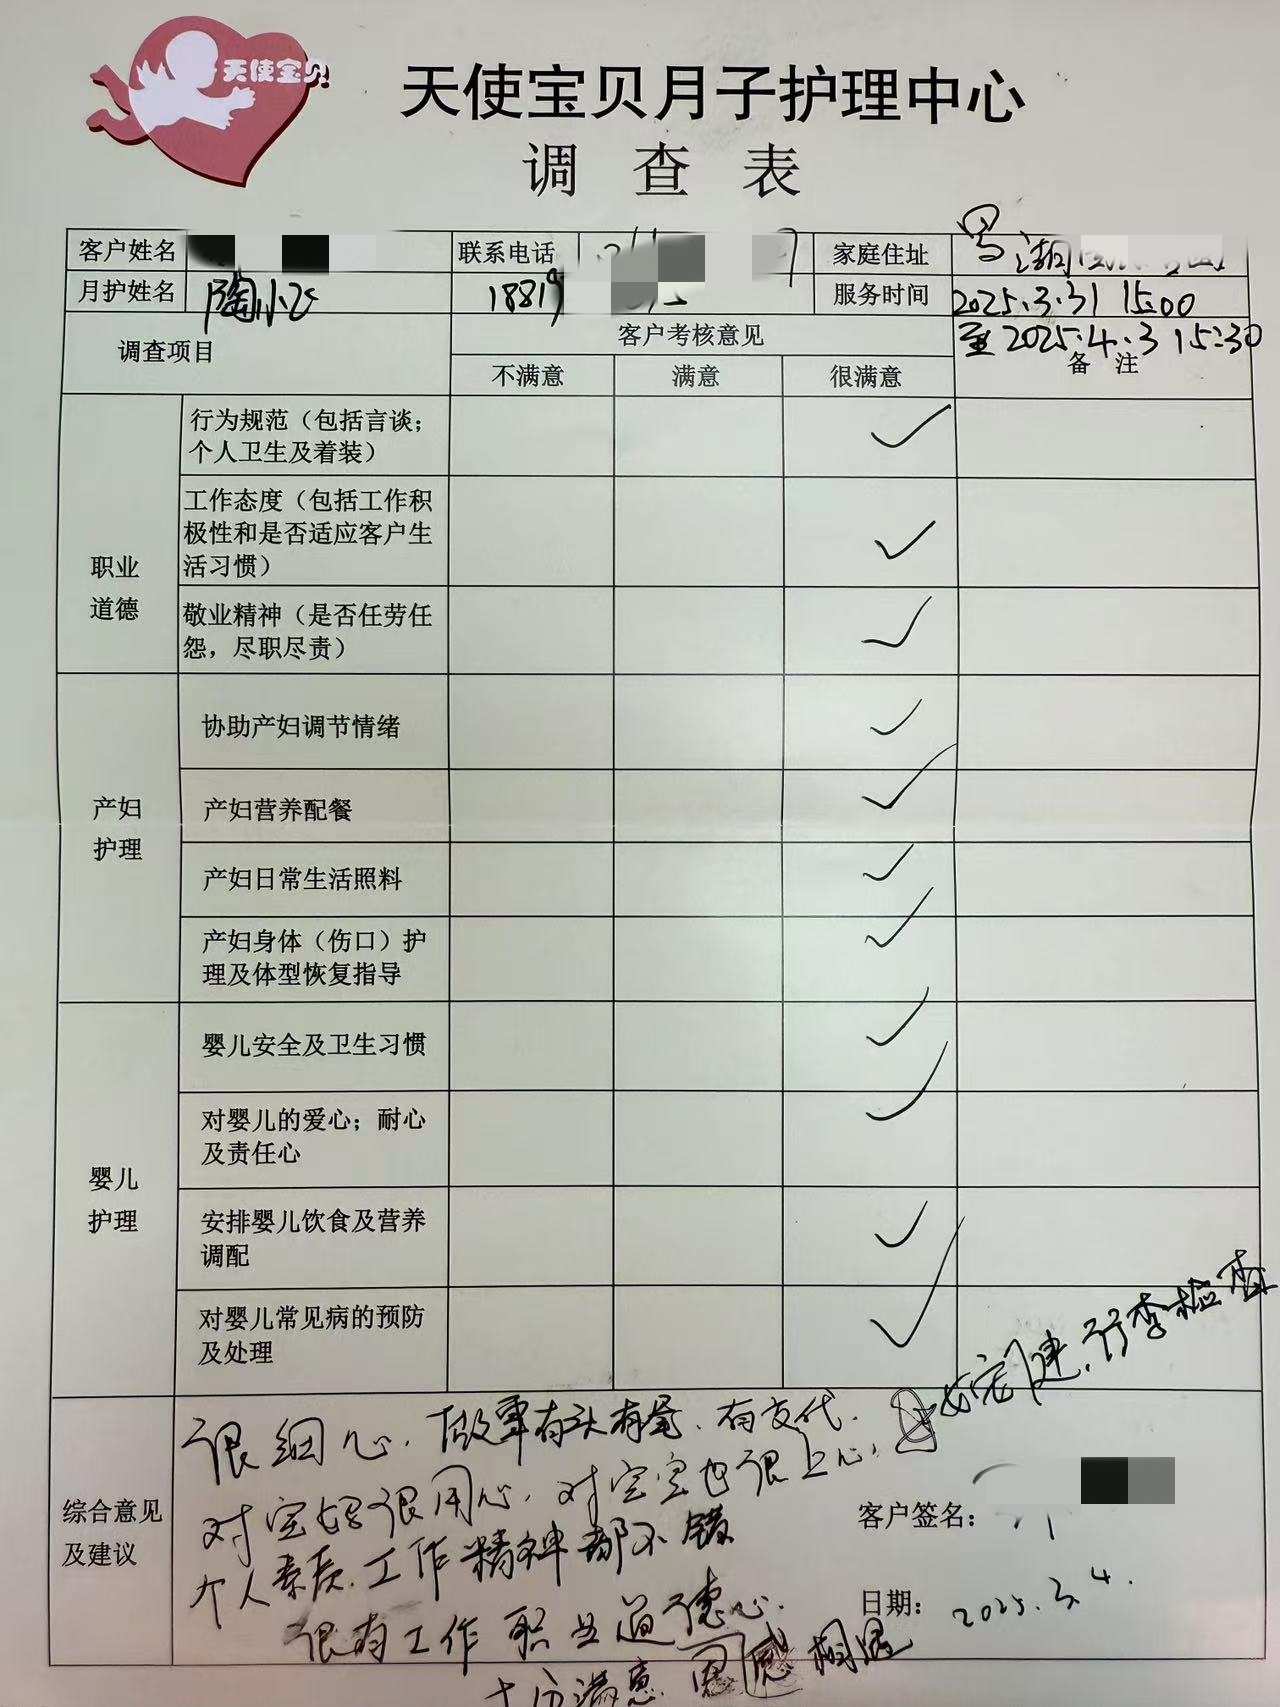 天使宝贝
天使宝贝月子护理中心
调查表
客户姓名 联系电话 家庭住址
月护姓名 陶小 18819 服务时间 2025.3.31 15:00
至2025.4.3 15:30
调查项目 客户考核意见 备注
不满意 满意 很满意
职业
道德
行为规范（包括言谈；
个人卫生及着装）
工作态度（包括工作积
极性和是否适应客户生
活习惯）
敬业精神（是否任劳任
怨，尽职尽责）
产妇
护理
协助产妇调节情绪
产妇营养配餐
产妇日常生活照料
产妇身体（伤口）护
理及体型恢复指导
婴儿
护理
婴儿安全及卫生习惯
对婴儿的爱心；耐心
及责任心
安排婴儿饮食及营养
调配
对婴儿常见病的预防
及处理
综合意见
及建议
很细心，做事有头有尾，有交代，
行李检查
对宝妈很用心，对宝宝也很上心，
个人素质，工作精神都不错
很有工作职业道德心，
十分满意 感恩相遇
客户签名：
日期：2025.3.4.